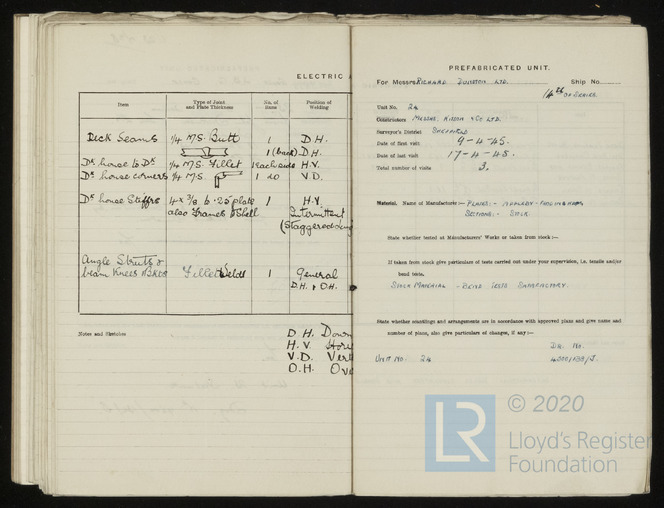 ELECTRIC A
Item
Type of Joint and Plate Thickness
No. of Runs
Position of Welding
Deck Seams 1/4 M.S. Butt 1 D.H.
1 (back) D.H.
Dk house to Dk 1/4 M.S. Fillet 1 each side H.V.
Dk house corners 1/4 M.S. 1 20 V.D.
Dk house Stiffrs 4 x 3/8 to .25 plate 1 H.V.
also Frames to Shell Intermittent
(Staggered
Angle Struts &
beam Knees Fillet Welds 1 General
D.H. & O.H.
Notes and Sketches
D.H. Down
H.V. Hori
V.D. Vert
O.H. Ove
PREFABRICATED UNIT.
For Messrs RICHARD DUNSTON LTD. Ship No.
14th OF SERIES.
Unit No. 24
Contractors MESSRS. KIDSON & CO LTD.
Surveyor's District SHEFFIELD
Date of first visit 9-4-45.
Date of last visit 17-4-45.
Total number of visits 3.
Material. Name of Manufacturer:- PLATES:- APPLEBY-FRODINGHAM
SECTIONS:- STOCK
State whether tested at Manufacturers' Works or taken from stock:-
If taken from stock give particulars of tests carried out under your supervision, i.e. tensile and/or
bend tests.
STOCK MATERIAL - BEND TESTS SATISFACTORY.
State whether scantlings and arrangements are in accordance with approved plans and give name and
number of plans, also give particulars of changes, if any:-
DRG. NO.
UNIT NO. 24
© 2020
LR
Lloyd's Register
Foundation